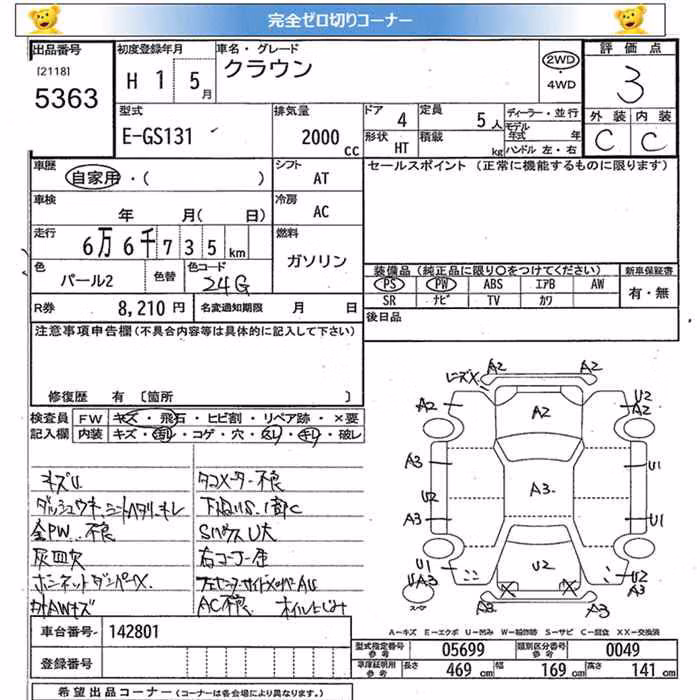 完全ゼロ切りコーナー
出品番号
[2118]
5363
初度登録年月
H 1 5月
車名・グレード
クラウン
2WD
4WD
評価点
3
外装 内装
C C
型式
E-GS131
排気量
2000 cc
ドア 4
定員 5人
形状 HT
積載 kg
ディーラー・並行
モデル年式 年
ハンドル 左・右
車歴
自家用・( )
シフト AT
セールスポイント (正常に機能するものに限ります)
車検
年 月( 日)
冷房 AC
走行
6万6千735km
燃料
ガソリン
色
パール2
色替
色コード
24G
装備品 (純正品に限り○をつけてください)
新車保証書
PS PW ABS エアB AW
SR ナビ TV カワ
有・無
R券 8,210円
名変通知期限 月 日
後日品
注意事項申告欄(不具合内容等は具体的に記入して下さい)
修復歴 有 [箇所 ]
検査員記入欄
FW キズ・飛石・ヒビ割・リペア跡・×要
キズU
タコメーター不良
全PW不良
SハウスU大
灰皿欠
ボンネットダンパーX
AC不良 オイルにじみ
A2 A2
A2 A2 U2 A2
A3 A3 U1
U2
A3 U1
U1 U2 U2
A3 A3
A3 A3
スペア
A-キズ E-エクボ U-凹み W-補修跡 S-サビ C-腐食 XX-交換済
車台番号 142801
登録番号
型式指定番号 参考 05699
類別区分番号 参考 0049
車庫証明用 参考
長さ 469 cm
幅 169 cm
高さ 141 cm
希望出品コーナー (コーナーは各会場により異なります。)